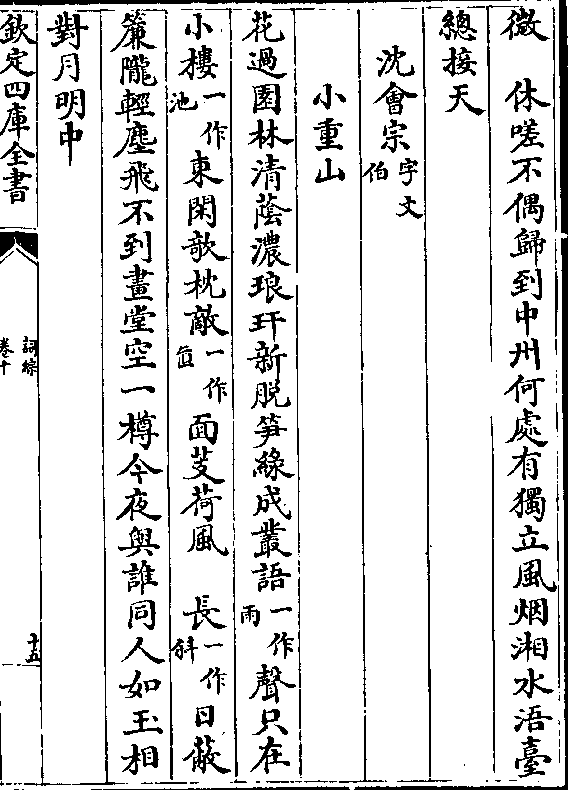 微　休嗟不偶歸到中州何處有獨立風烟湘水浯臺
總接天
沈會宗字文伯
小重山
花過園林清蔭濃琅玕新脫笋緑成叢語一作雨聲只在
小樓一作池東閑欹枕敵一作直面芰荷風　長一作斜日蔽
簾隴輕塵飛不到畫堂空一樽今夜與誰同人如玉相
對月明中
欽定四庫全書
詞綜
卷十
十五